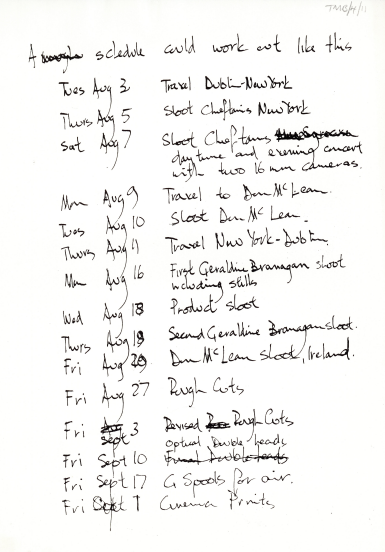 TMC/4/11
A schedule could work out like this
Tues Aug 3 Travel Dublin-New York
Thurs Aug 5 Shoot Chieftains New York
Sat Aug 7 Shoot Chieftains
daytime and evening concert
with two 16 mm cameras.
Mon Aug 9 Travel to Don McLean.
Tues Aug 10 Shoot Don McLean.
Thurs Aug 11 Travel New York-Dublin.
Mon Aug 16 First Geraldine Branagan shoot
including stills
Wed Aug 18 Product shoot
Thurs Aug 19 Second Geraldine Branagan shoot.
Fri Aug 20 Don McLean shoot, Ireland.
Fri Aug 27 Rough Cuts
Fri Sept 3 Revised Rough Cuts
optical Double heads
Fri Sept 10 Final Double heads
Fri Sept 17 G Spools for air.
Fri Oct 1 Cinema Prints